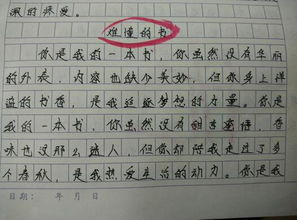 深的珍爱。
难懂的书
你是我的一本书，你虽然没有华丽
的外表，内容也缺个美妙，但你身上洋
溢的书香，是我延延梦想的力量。你是
我的一本书，你虽然没有甜言蜜语，香
味也没那么迷人，但你却陪我走过了多
个春秋，是我热爱生活的动力。你是我
日期： 年 月 日